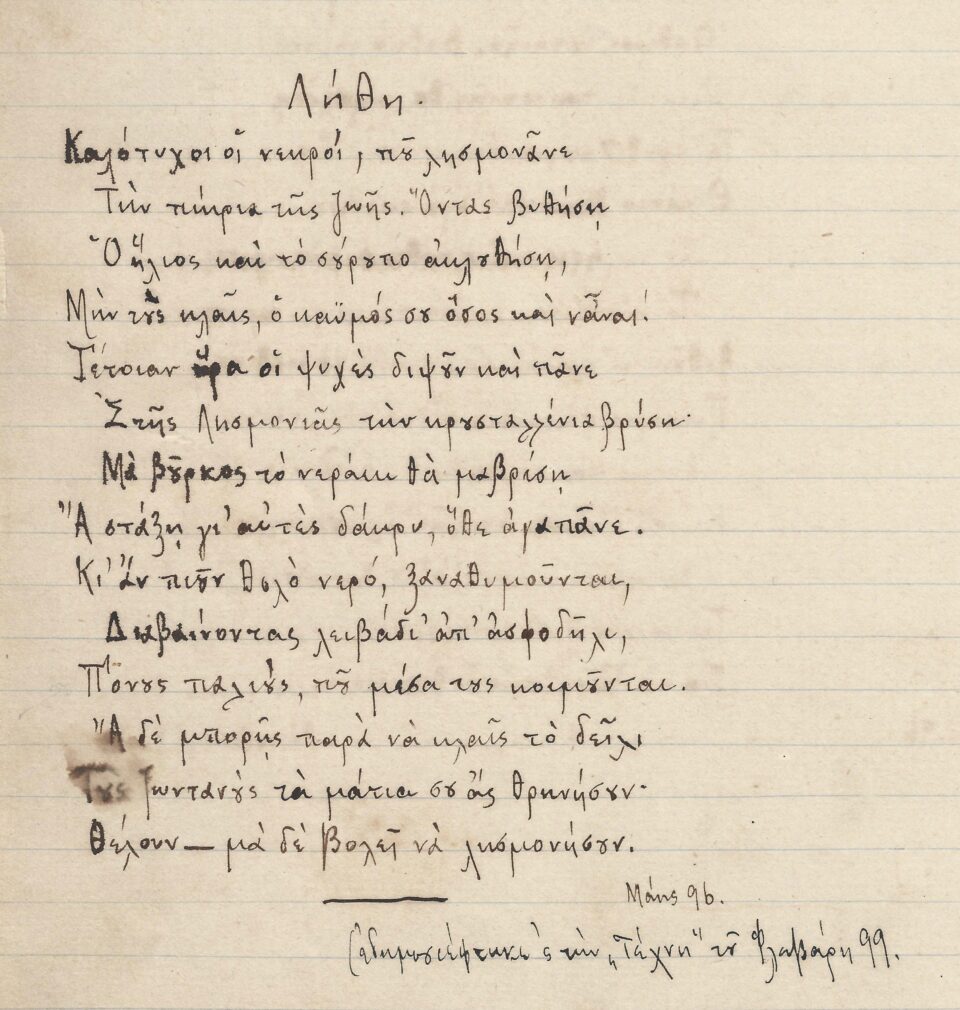 Λήθη.
Καλότυχοι οἱ νεκροί, ποῦ λησμονᾶνε
Τὴν πίκρια τῆς ζωῆς. Ὄντας βυθήσῃ
Ὁ ἥλιος καὶ τὸ σούρουπο ἀκλουθήσῃ,
Μὴν τοὺς κλαῖς, ὁ καϋμός σου ὅσος καὶ νἆναι!
Τέτοιαν ὥρα οἱ ψυχὲς διψοῦν καὶ πᾶνε
Στῆς Λησμονιᾶς τὴν κρουσταλλένια βρύση·
Μὰ βοῦρκος τὸ νεράκι θὰ μαβρίσῃ
Ἂ στάξῃ γι' αὐτὲς δάκρυ, ὅθε ἀγαπᾶνε.
Κι' ἂν πιοῦν θολὸ νερό, ξαναθυμοῦνται,
Διαβαίνοντας λειβάδι' ἀπ' ἀσφοδῆλι,
Πόνους παλιούς, ποῦ μέσα τους κοιμοῦνται.
Ἂ δὲ μπορῇς παρὰ νὰ κλαῖς τὸ δεῖλι
Τοὺς ζωντανοὺς τὰ μάτια σου ἂς θρηνήσουν·
Θέλουν — μὰ δὲ βολεῖ νὰ λησμονήσουν.
Μάης 96.
(ἐδημοσιέφτηκε 'ς τὴν „Τέχνη" τοῦ Φλεβάρη 99.